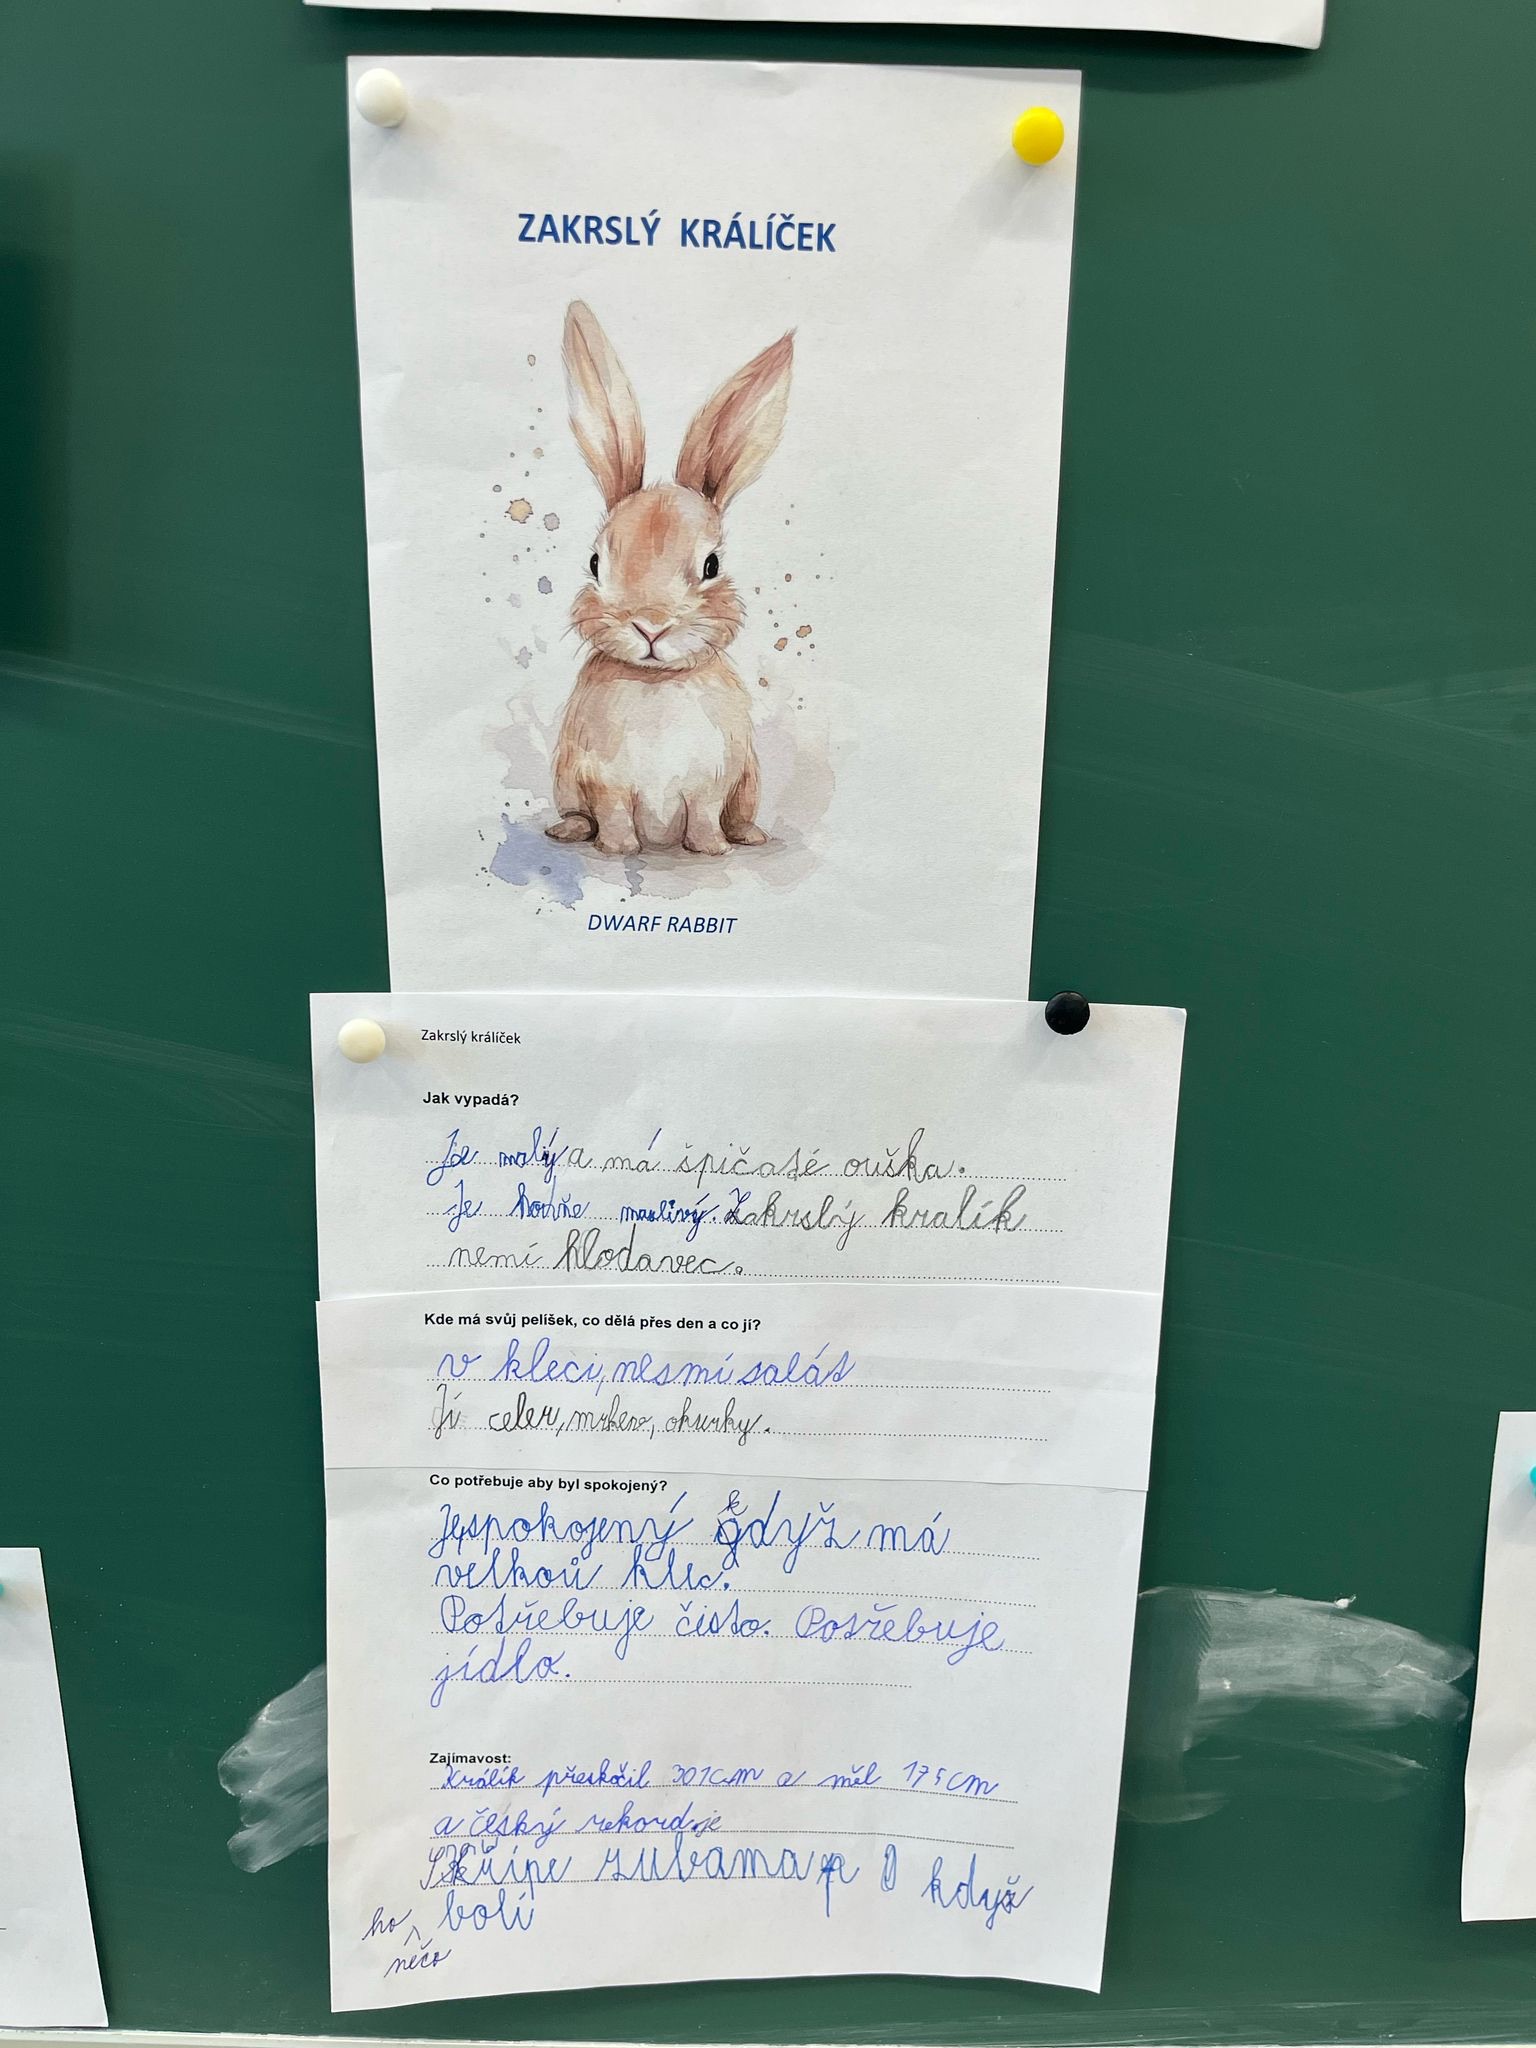 ZAKRSLÝ KRÁLÍČEK
DWARF RABBIT
Zakrslý králíček
Jak vypadá?
Je malý a má špičaté ouška.
Je hodně mazlivý. Zakrslý kralík
nemí hlodavec.
Kde má svůj pelíšek, co dělá přes den a co jí?
v kleci, nesmí salát
Jí celer, mrkev, okurky.
Co potřebuje aby byl spokojený?
Je spokojený když má
velkou klec.
Potřebuje čisto. Potřebuje
jídlo.
Zajímavost:
Králík přeskočil 301cm a měl 175cm
a český rekord je
Skřípe zubama když
ho bolí
něco